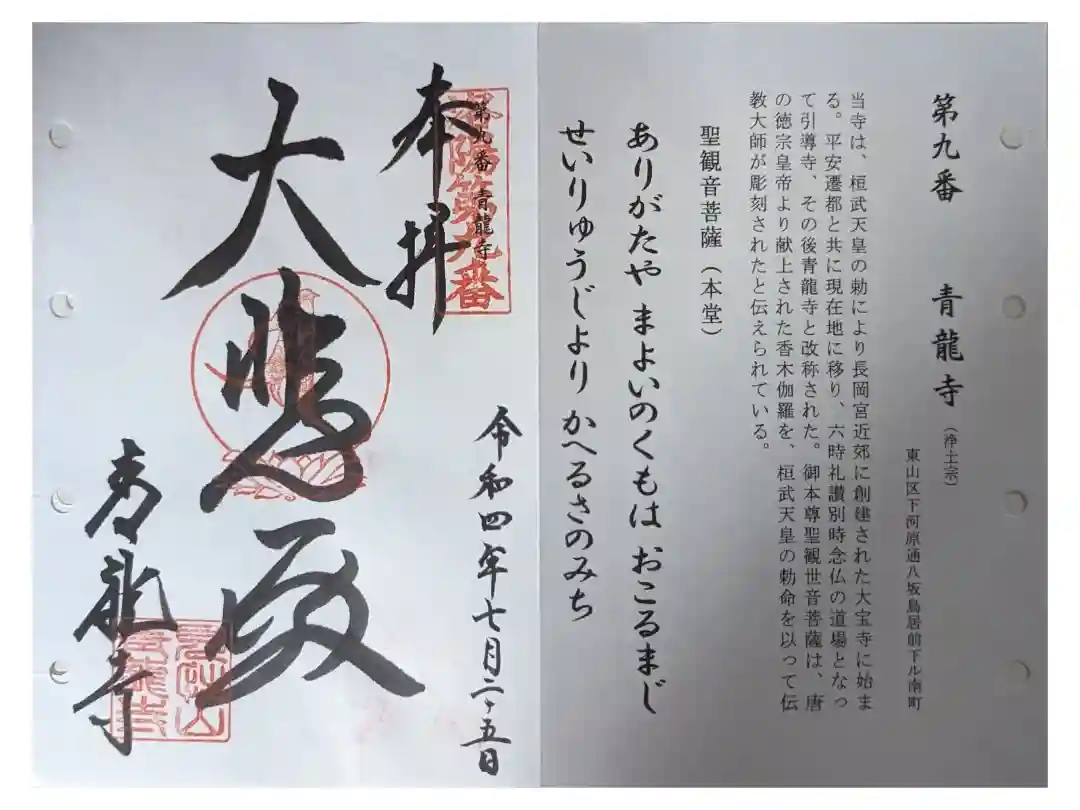 第九番 青龍寺（浄土宗）
東山区下河原通八坂鳥居前下ル南町
当寺は、桓武天皇の勅により長岡宮近郊に創建された大宝寺に始ま
る。平安遷都と共に現在地に移り、六時礼讃別時念仏の道場となっ
て引導寺、その後青龍寺と改称された。御本尊聖観世音菩薩は、唐
の徳宗皇帝より献上された香木伽羅を、桓武天皇の勅命を以って伝
教大師が彫刻されたと伝えられている。
聖観音菩薩（本堂）
ありがたや まよいのくもは おこるまじ
せいりゅうじより かへるさのみち
第九番 青龍寺
洛陽第九番
本拝
令和四年七月二五日
大悲殿
青龍寺